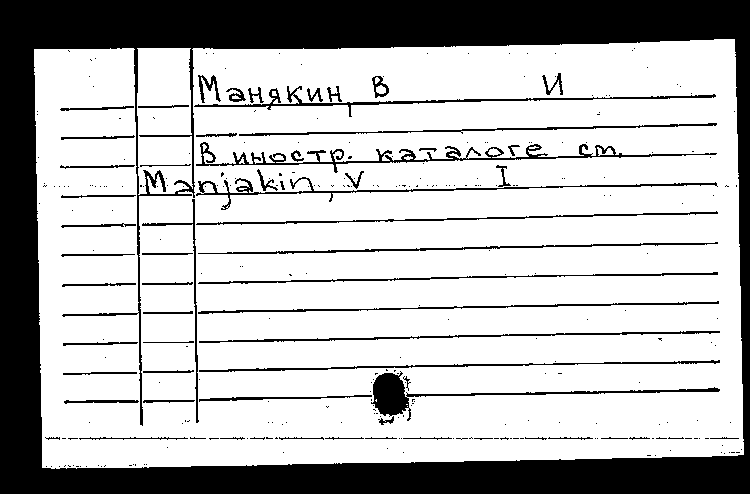 Манякин, В И
В иностр. каталоге см.
Manjakin, V I